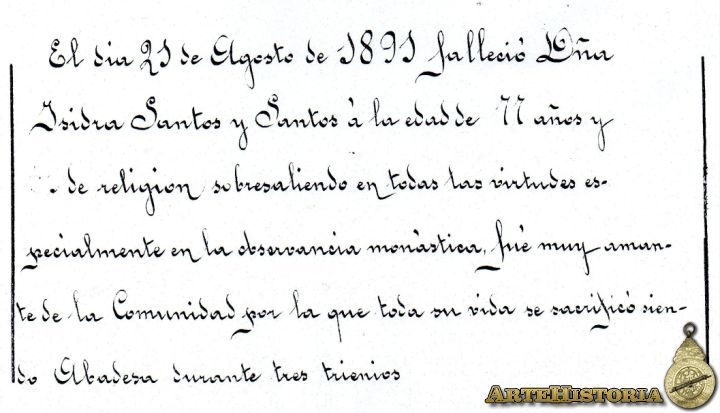 El dia 21 de Agosto de 1891 falleció Dña
Isidra Santos y Santos à la edad de 77 años y
de religion sobresaliendo en todas las virtudes es-
pecialmente en la observancia monàstica, fué muy aman-
te de la Comunidad por la que toda su vida se sacrificó sien-
do Abadesa durante tres trienios
ARTEHISTORIA